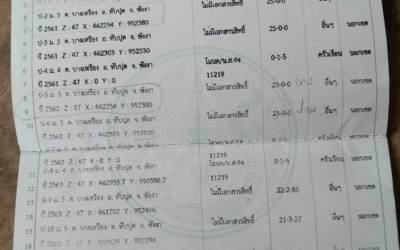 ป-2 ม. 5 ต. บางเหรียง อ. ทับปุด จ. พังงา ไม่มีเอกสารสิทธิ์ 25-0-0 อื่นๆ นอกเขต
ปี 2561 Z : 47 X : 462254 Y : 952380
3 ป-3 ม. 5 ต. บางเหรียง อ. ทับปุด จ. พังงา ไม่มีเอกสารสิทธิ์ 25-0-0 อื่นๆ นอกเขต
ปี 2561 Z : 47 X : 462303 Y : 952530
ป-4 ม. 4 ต. บางเหรียง อ. ทับปุด จ. พังงา โฉนด/น.ส.4จ 0-1-5 ครัวเรือน นอกเขต
ปี 2561 Z : 47 X : 0 Y : 0 11219
ป-5 ม. 5 ต. บางเหรียง อ. ทับปุด จ. พังงา ไม่มีเอกสารสิทธิ์ 25-0-0 อื่นๆ นอกเขต
ปี 2562 Z : 47 X : 462254 Y : 952380
ป-6 ม. 5 ต. บางเหรียง อ. ทับปุด จ. พังงา ไม่มีเอกสารสิทธิ์ 25-0-0 อื่นๆ นอกเขต
ปี 2562 Z : 47 X : 462303 Y : 952530
10 โฉนด/น.ส.4จ 0-1-5 ครัวเรือน นอกเขต
ปี 2562 Z : 47 X : 0 Y : 0 11219
11 ป-8 ม. 4 ต. บางเหรียง อ. ทับปุด จ. พังงา ไม่มีเอกสารสิทธิ์ 22-2-85 อื่นๆ นอกเขต
ปี 2563 Z : 47 X : 462955.7 Y : 950586.2
12 ป-9 ม. 5 ต. บางเหรียง อ. ทับปุด จ. พังงา ไม่มีเอกสารสิทธิ์ 21-3-27 อื่นๆ นอกเขต
ปี 2563 Z : 47 X : 461702 Y : 952466
ป-10 ม. 5 ต. บางเหรียง อ. ทับปุด จ. พังงา